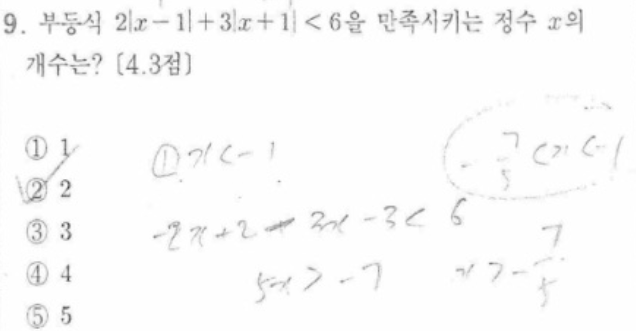 9. 부등식 2|x-1|+3|x+1|<6을 만족시키는 정수 x의
개수는? [4.3점]
① 1
② 2
③ 3
④ 4
⑤ 5
① x<-1
-2x+2-3x-3<6
5x>-7 x>-7/5
-7/5<x<-1